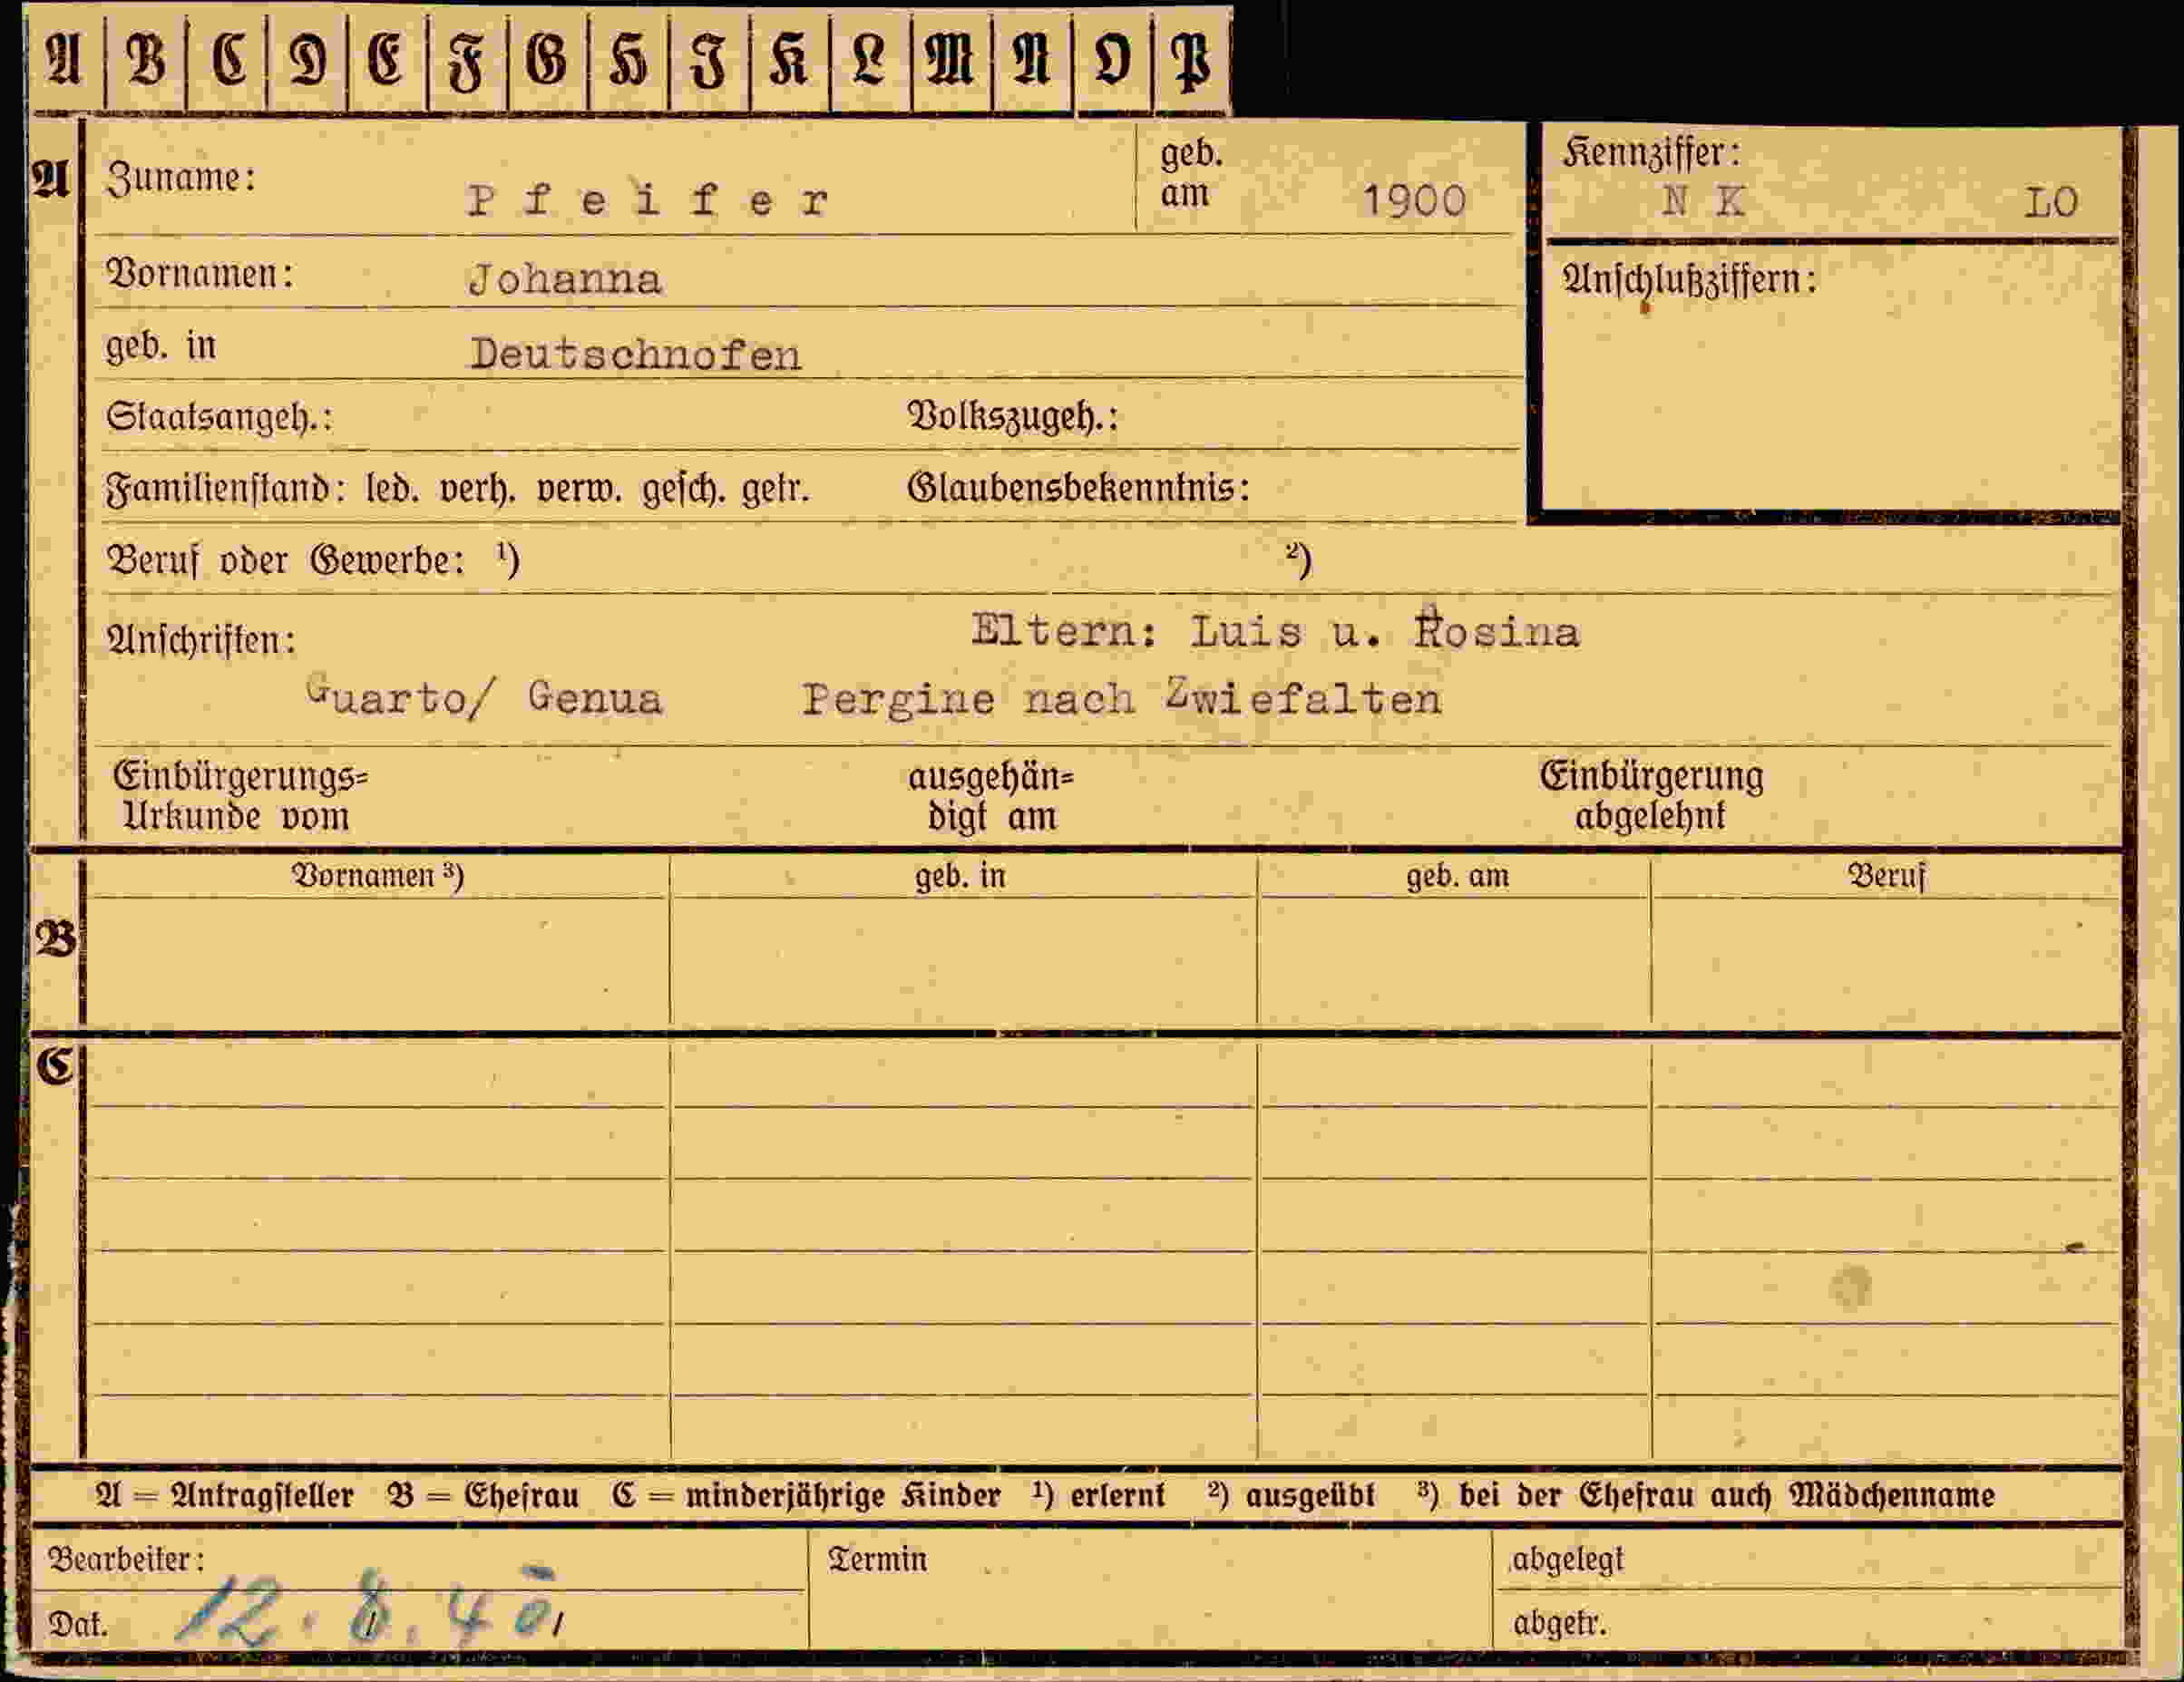 A B C D E F G H I K L M N O P
A Zuname: Pfeifer geb. am 1900 Kennziffer: N K LO
Vornamen: Johanna Anschlußziffern:
geb. in Deutschnofen
Staatsangeh.: Volkszugeh.:
Familienstand: led. verh. verw. gesch. getr. Glaubensbekenntnis:
Beruf oder Gewerbe: ¹) ²)
Anschriften: Eltern: Luis u. Rosina
Guarto/ Genua Pergine nach Zwiefalten
Einbürgerungs= ausgehän= Einbürgerung
Urkunde vom digt am abgelehnt
Vornamen ³) geb. in geb. am Beruf
B
C
A = Antragsteller B = Ehefrau C = minderjährige Kinder ¹) erlernt ²) ausgeübt ³) bei der Ehefrau auch Mädchenname
Bearbeiter: Termin abgelegt
Dat. 12.8.40 abgetr.